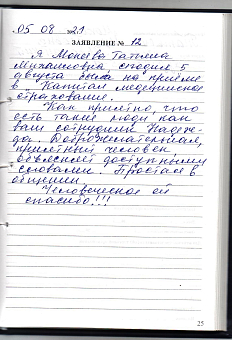 05 08 21
ЗАЯВЛЕНИЕ № 12
Я Монеева Татьяна
Михайловна, сегодня 5
августа была на приёме
в Капитал медицинское
страхование.
Как приятно, что
есть такие люди как
ваш сотрудник Надеж-
да. Доброжелательная,
приятный человек
объясняет доступными
словами. Простая в
общении
Человеческое ей
спасибо!!!
25